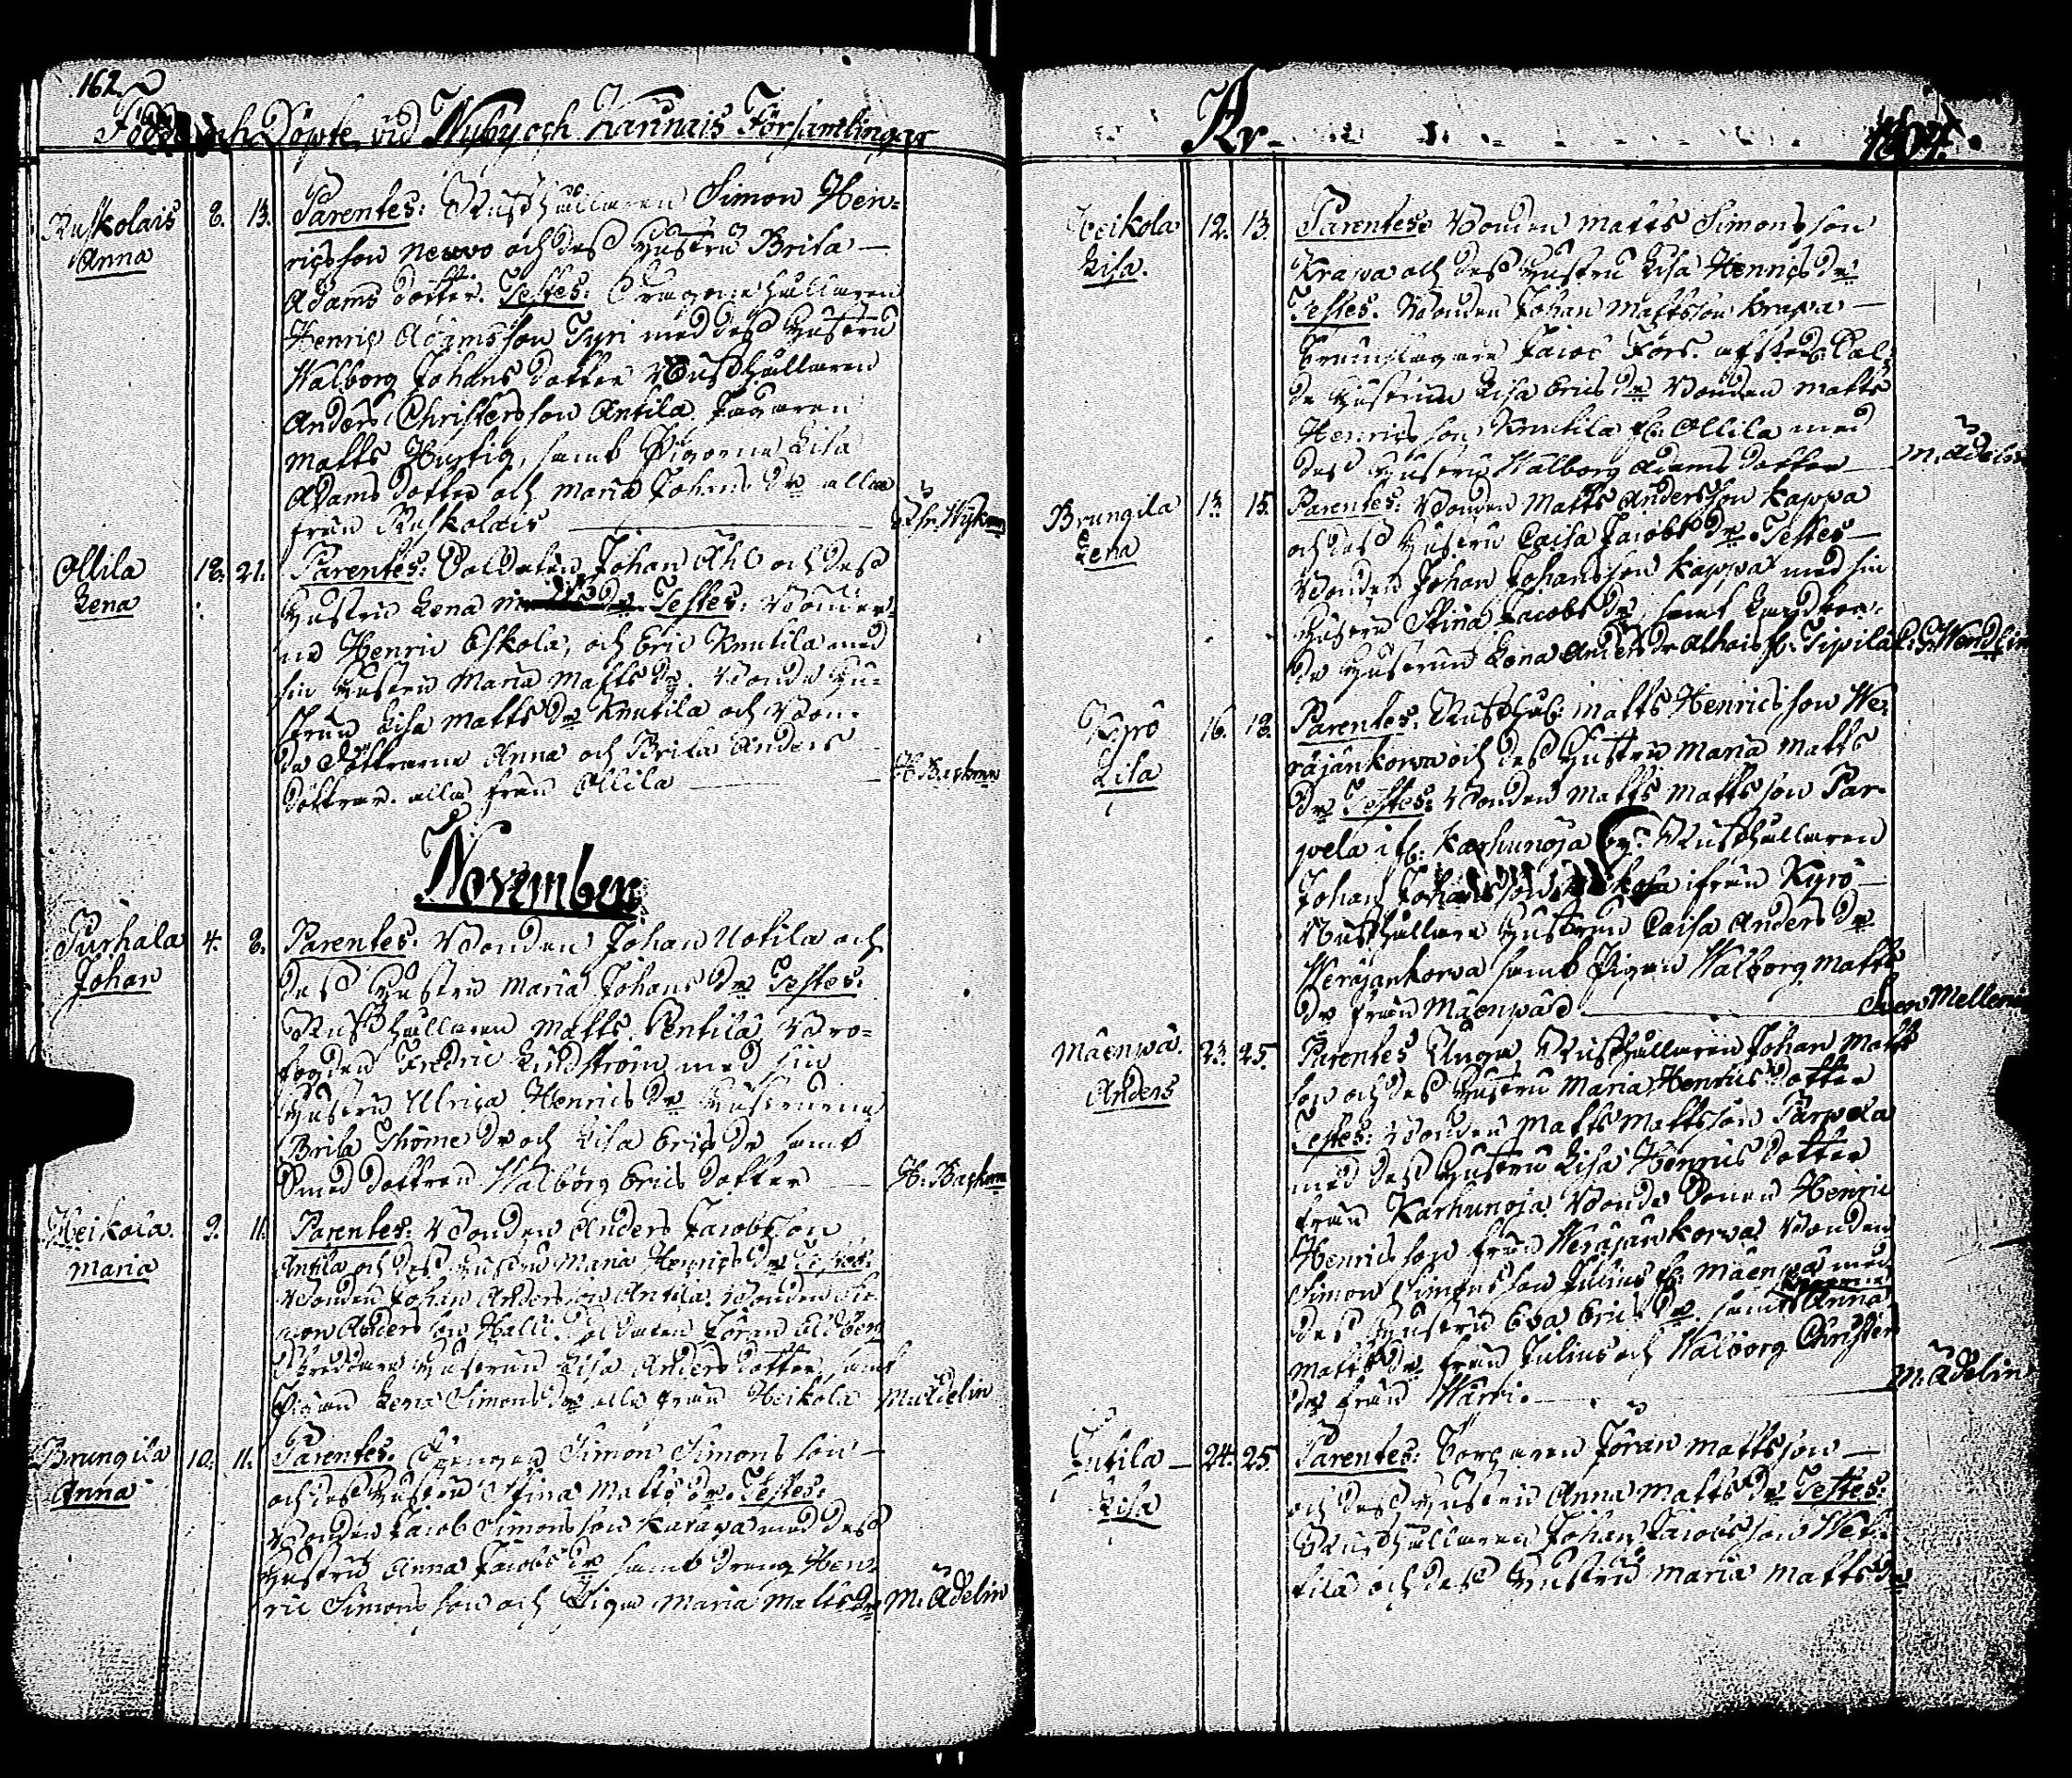 162.
Födde och Döpte, vid Nyby och Karinais Församlingar
Ruskolais 8. 13. Parentes: Rusthållaren Simon Hen-
Anna ricsson Nervo och dess Hustru Brita
Adams dotter. Testes: Dragonehållaren
Henric Adamsson Tyri med dess Hustru
Walborg Johans dotter Rusthållaren
Anders Christersson Antila
Matts Hurtig, samt Pigorna Lisa
Adams dotter och Maria Johans dr alla
från Ruskolais
Ollila 18. 21. Parentes: Soldaten Johan Ahl och dess
Lena Hustru Lena Testes: Bönder-
ne Henric Eskola, och Eric Knutila med
sin Hustru Maria Matts dr. Bonde Hu-
strun Lisa Matts dr Knutila och Bon-
de Döttrarne Anna och Brita Anders
döttrar. alla från Ollila H: Backman
November
Purhala 4. 8. Parentes: Bonden Johan Uotila och
Johan dess Hustru Maria Johans dr Testes:
Rusthållaren Matts Pentilä Bro-
fogden Fredric Lindström med sin
Hustru Ulrica Henrics dr Hustrurna
Brita Thome dr och Lisa Erics dr samt
Smed dottren Walborg Erics dotter H: Backman
Heikola. 9. 11. Parentes: Bonden Anders Jacobsson
Maria Antila och dess Hustru Maria Henrics dr Testes:
Bonden Johan Andersson Antila. Bonden Si-
mon Andersson Halli. Soldaten Jöran
Hustrun Lisa Anders dotter, samt
Pigan Lena Simons dr alla från Heikola M: Adelin
Brungila 10. 11. Parentes: Simon Simonsson
Anna och dess Hustru Stina Matts dr. Testes:
Bonden Jacob Simonsson Karapa med dess
Hustru Anna Jacobs dr samt dreng Hen-
ric Simonsson och Pigan Maria Matts dr M. Adelin
År 1804.
Heikola 12. 13. Parentes: Bonden Matts Simonsson
Lisa. Krapa och dess Hustru Lisa Henrics dr
Testes. Bonden Johan Mattsson Krapa
Jacob Fors.
de Hustrun Lisa Erics dr Bonden Matts
Henricsson Knutila fr: Ollila med
dess Hustru Walborg Adams dotter M. Adelin
Brungila 13 15. Parentes: Bonden Matts Andersson Kappa
Lena och dess Hustru Caisa Jacobs dr. Testes
Bonden Johan Johansson Kappa med sin
Hustru Stina Jacobs dr, samt
Hustrun Lena Anders dr
Kyrö 16. 18. Parentes: Rusth: Matts Henricsson We-
Lisa räjänkorwa och dess Hustru Maria Matts
dr Testes: Bonden Matts Mattsson Par-
pela i fr: Karhunoja by. Rusthållaren
Johan Johansson ifrån Kyrö
Rusthållare Hustrun Caisa Anders dr
Weräjänkorwa samt Pigan Walborg Matts
dr från Mäenpää. Mellen
Mäenpä. 23. 25. Parentes Unga Rusthållaren Johan Matts
Anders son och dess Hustru Maria Henrics dotter
Testes: Bonden Matts Mattsson Parpela
med dess Hustru Lisa Henrics dotter
från Karhunoja. Bonde Sonen Henric
Henricsson från Weräjänkorwa. Bonden
Simon Simonsson Julius fr: Mäenpä med
dess Hustru Eva Erics dr samt Pigorne Anna
Matts dr från Julius och Walborg Christers
dr från M. Adelin
Jutila 24. 25. Parentes: Torparen Jöran Mattsson
Lisa och dess Hustru Anna Matts dr Testes:
Rusthållaren Johan Jacobsson
tilä och dess Hustru Maria Matts dr